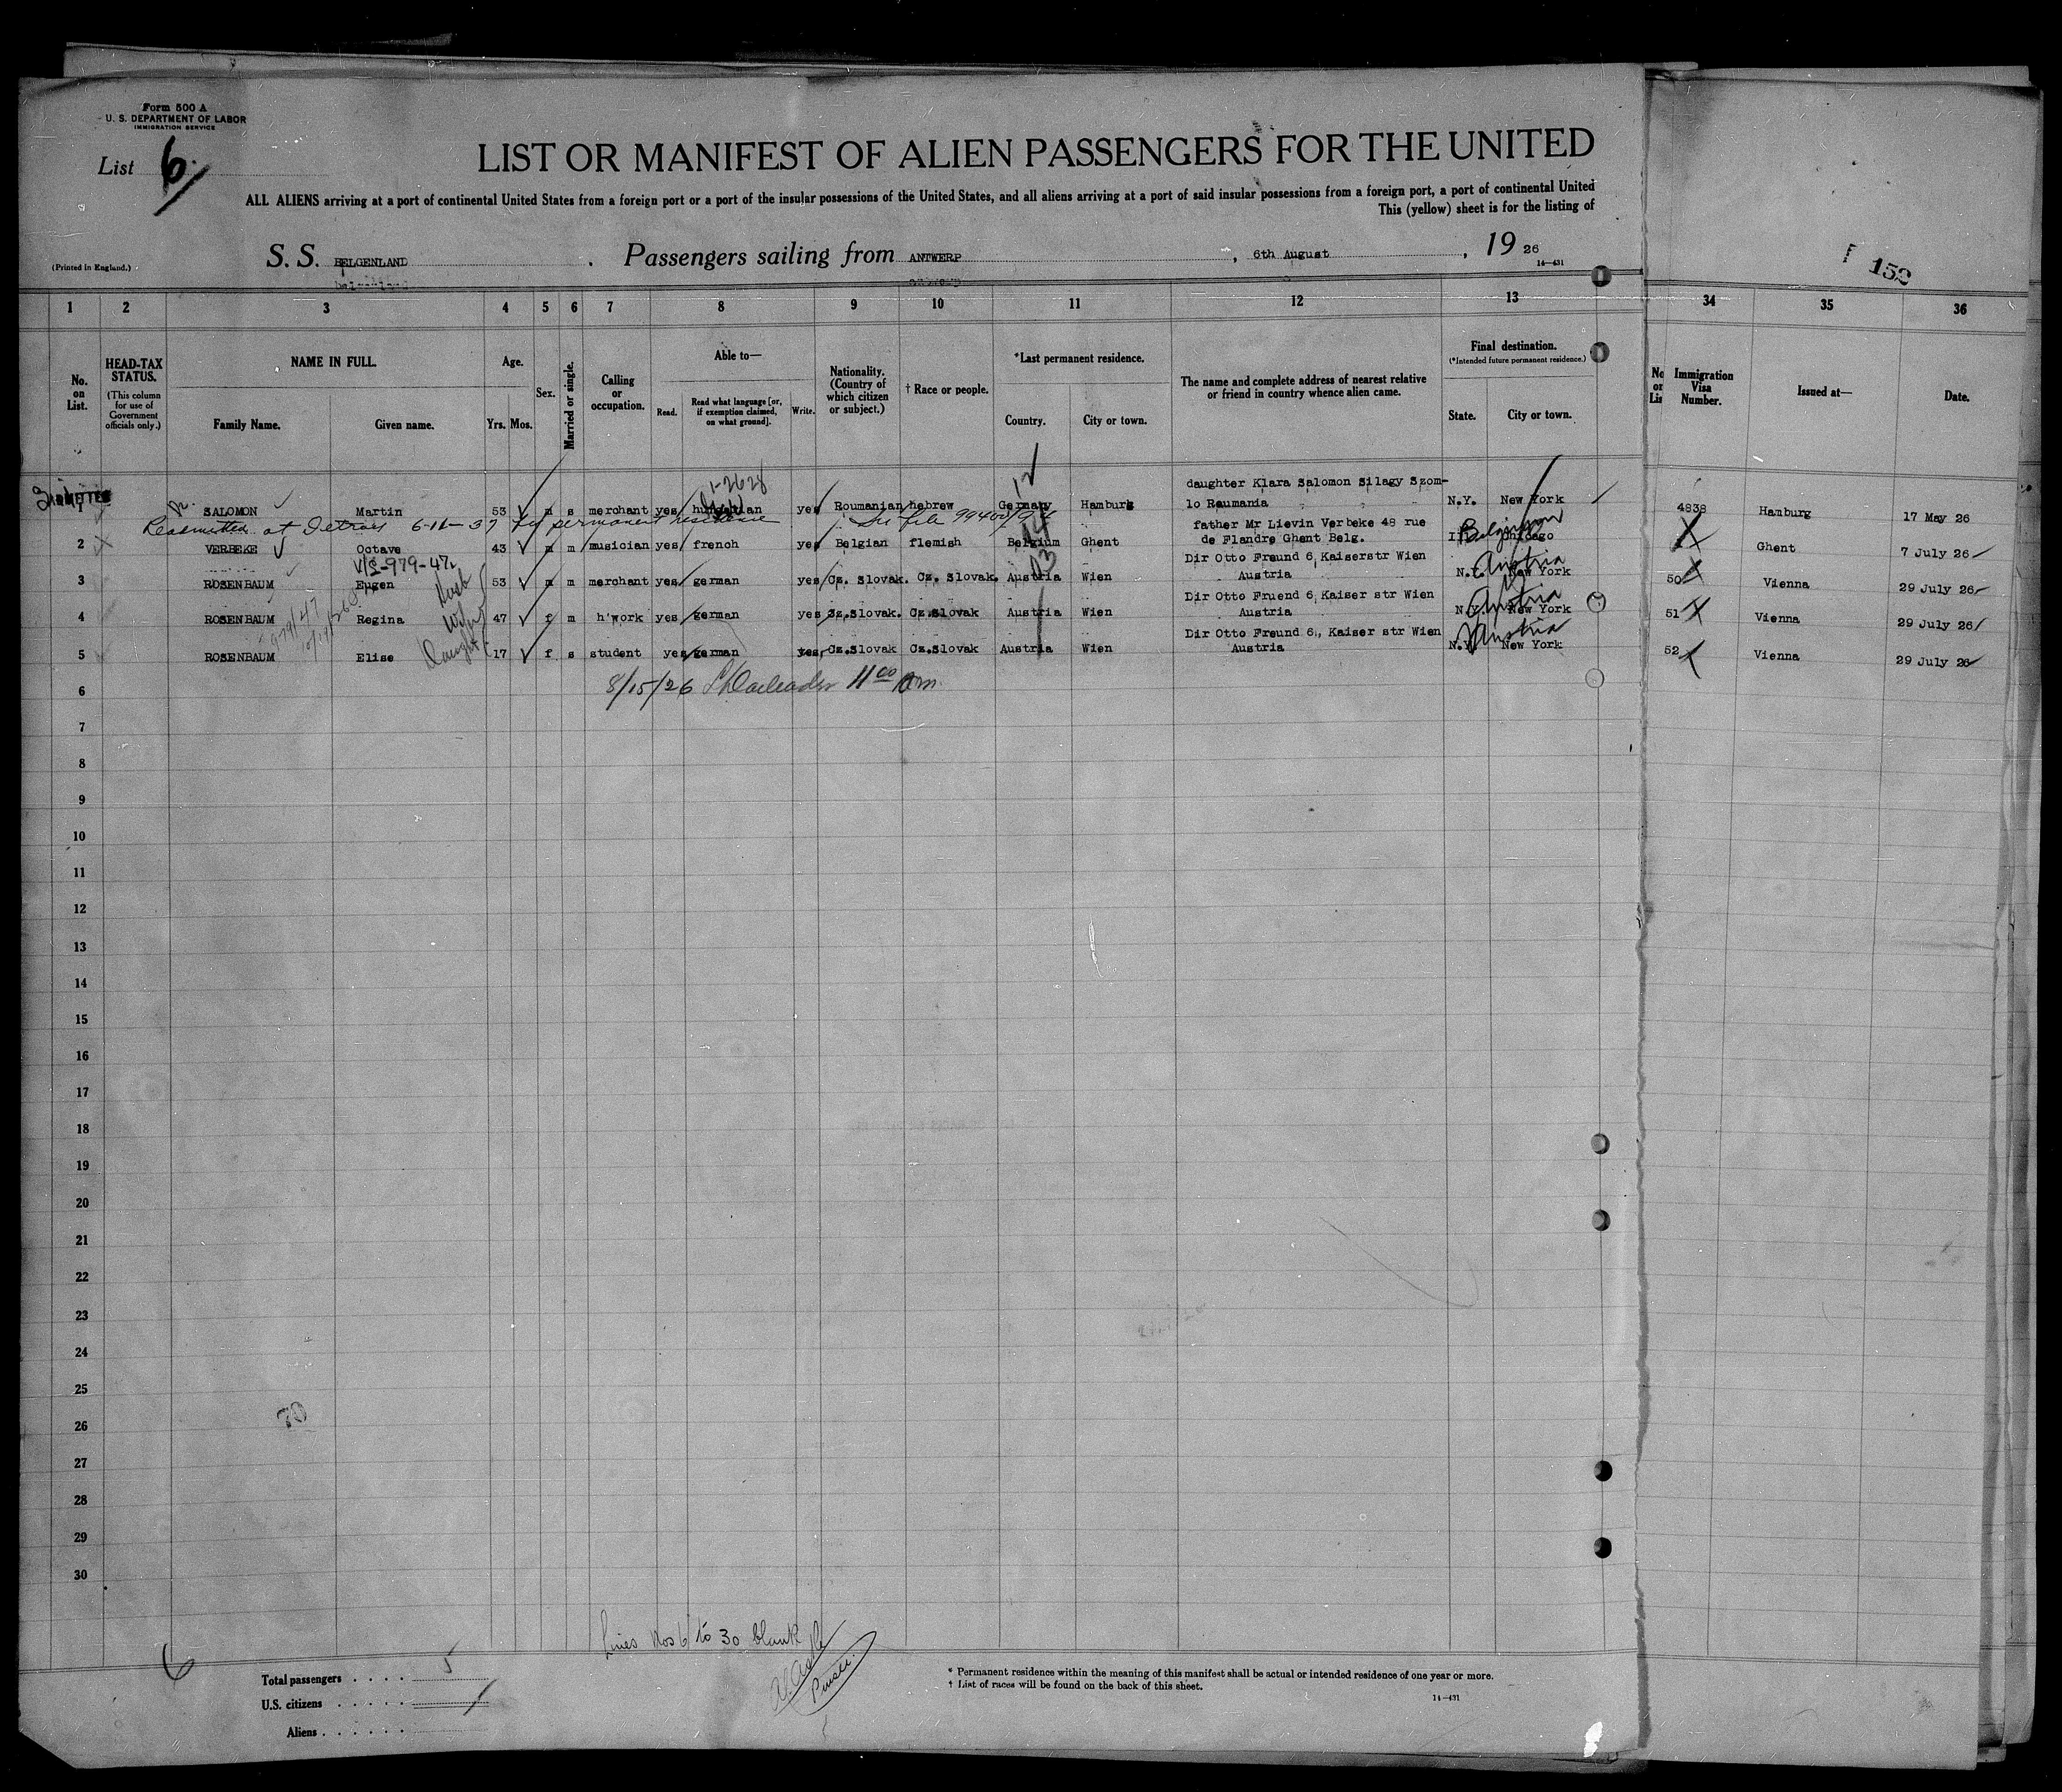 Form 500 A
U. S. DEPARTMENT OF LABOR
IMMIGRATION SERVICE
List 6
LIST OR MANIFEST OF ALIEN PASSENGERS FOR THE UNITED
ALL ALIENS arriving at a port of continental United States from a foreign port or a port of the insular possessions of the United States, and all aliens arriving at a port of said insular possessions from a foreign port, a port of continental United
This (yellow) sheet is for the listing of
(Printed in England.)
S. S. BELGENLAND . Passengers sailing from ANTWERP , 6th August , 19 26
14—431
152
1 2 3 4 5 6 7 8 9 10 11 12 13 34 35 36
No. on List.
HEAD-TAX STATUS.
(This column for use of Government officials only.)
NAME IN FULL.
Family Name. Given name.
Age.
Yrs. Mos.
Sex.
Married or single.
Calling or occupation.
Able to—
Read. Read what language [or, if exemption claimed, on what ground]. Write.
Nationality. (Country of which citizen or subject.)
† Race or people.
*Last permanent residence.
Country. City or town.
The name and complete address of nearest relative or friend in country whence alien came.
Final destination.
(*Intended future permanent residence.)
State. City or town.
Immigration Visa Number.
Issued at—
Date.
1-2628
12
SALOMON Martin 53 m s merchant yes yes Roumanian hebrew Germany Hamburg daughter Klara Salomon Silagy Szom-lo Raumania N.Y. New York 4838 Hamburg 17 May 26
Readmitted at Detroit 6-11-37 for permanent residence See file
2 VERBEKE Octave 43 m m musician yes french yes Belgian flemish Belgium Ghent father Mr Lievin Verbeke 48 rue de Flandre Ghent Belg. Ill Chicago Ghent 7 July 26
V/S-979-47
3 ROSENBAUM Eugen Husb 53 m m merchant yes german yes Cz. Slovak. Cz. Slovak. Austria Wien Dir Otto Freund 6, Kaiserstr Wien Austria N.Y. New York Austria 50 Vienna 29 July 26
4 ROSENBAUM Regina Wife 47 f m h'work yes german yes Cz.Slovak. Cz.Slovak Austria Wien Dir Otto Fruend 6, Kaiser str Wien Austria N.Y. New York Austria 51 Vienna 29 July 26
5 ROSENBAUM Elise Daught 17 f s student yes german yes, Cz.Slovak Cz.Slovak Austria Wien Dir Otto Freund 6., Kaiser str Wien Austria N.Y. New York Austria 52 Vienna 29 July 26
6 8/15/26 11 00 am
7
8
9
10
11
12
13
14
15
16
17
18
19
20
21
22
23
24
25
26
70
27
28
29
30
Lines Nos 6 to 30 blank
6
Total passengers . . . . 5
U.S. citizens . . . . .
Aliens . . . . . .
* Permanent residence within the meaning of this manifest shall be actual or intended residence of one year or more.
† List of races will be found on the back of this sheet.
14—431